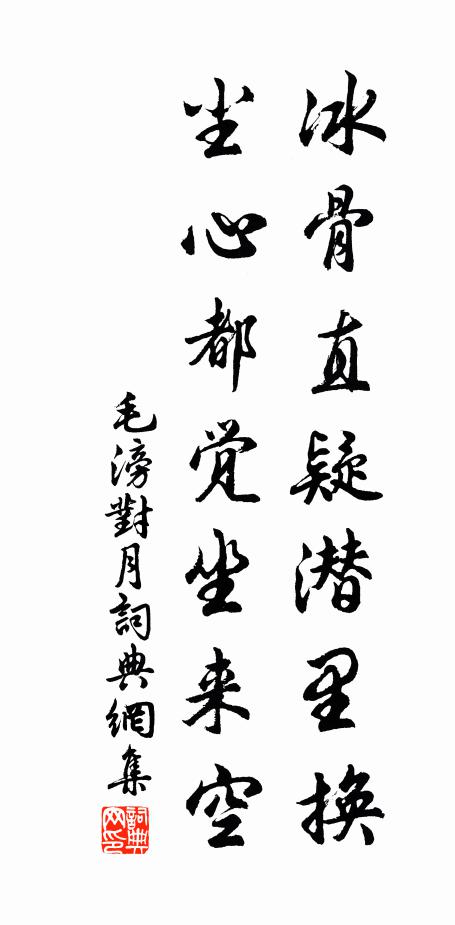 冰骨直疑潜里换
尘心都觉坐来空
毛滂對月詞典網集
詞典网印